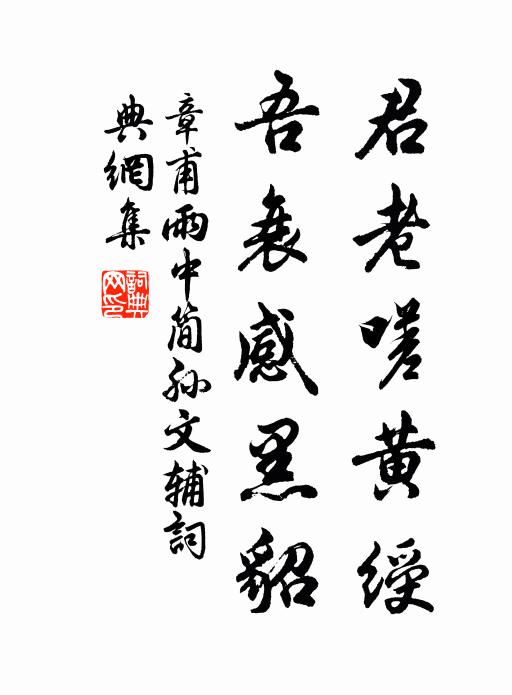 君老嗟黄绶
吾衰感黑貂
章甫雨中简孙文辅詞
典網集
詞典網印